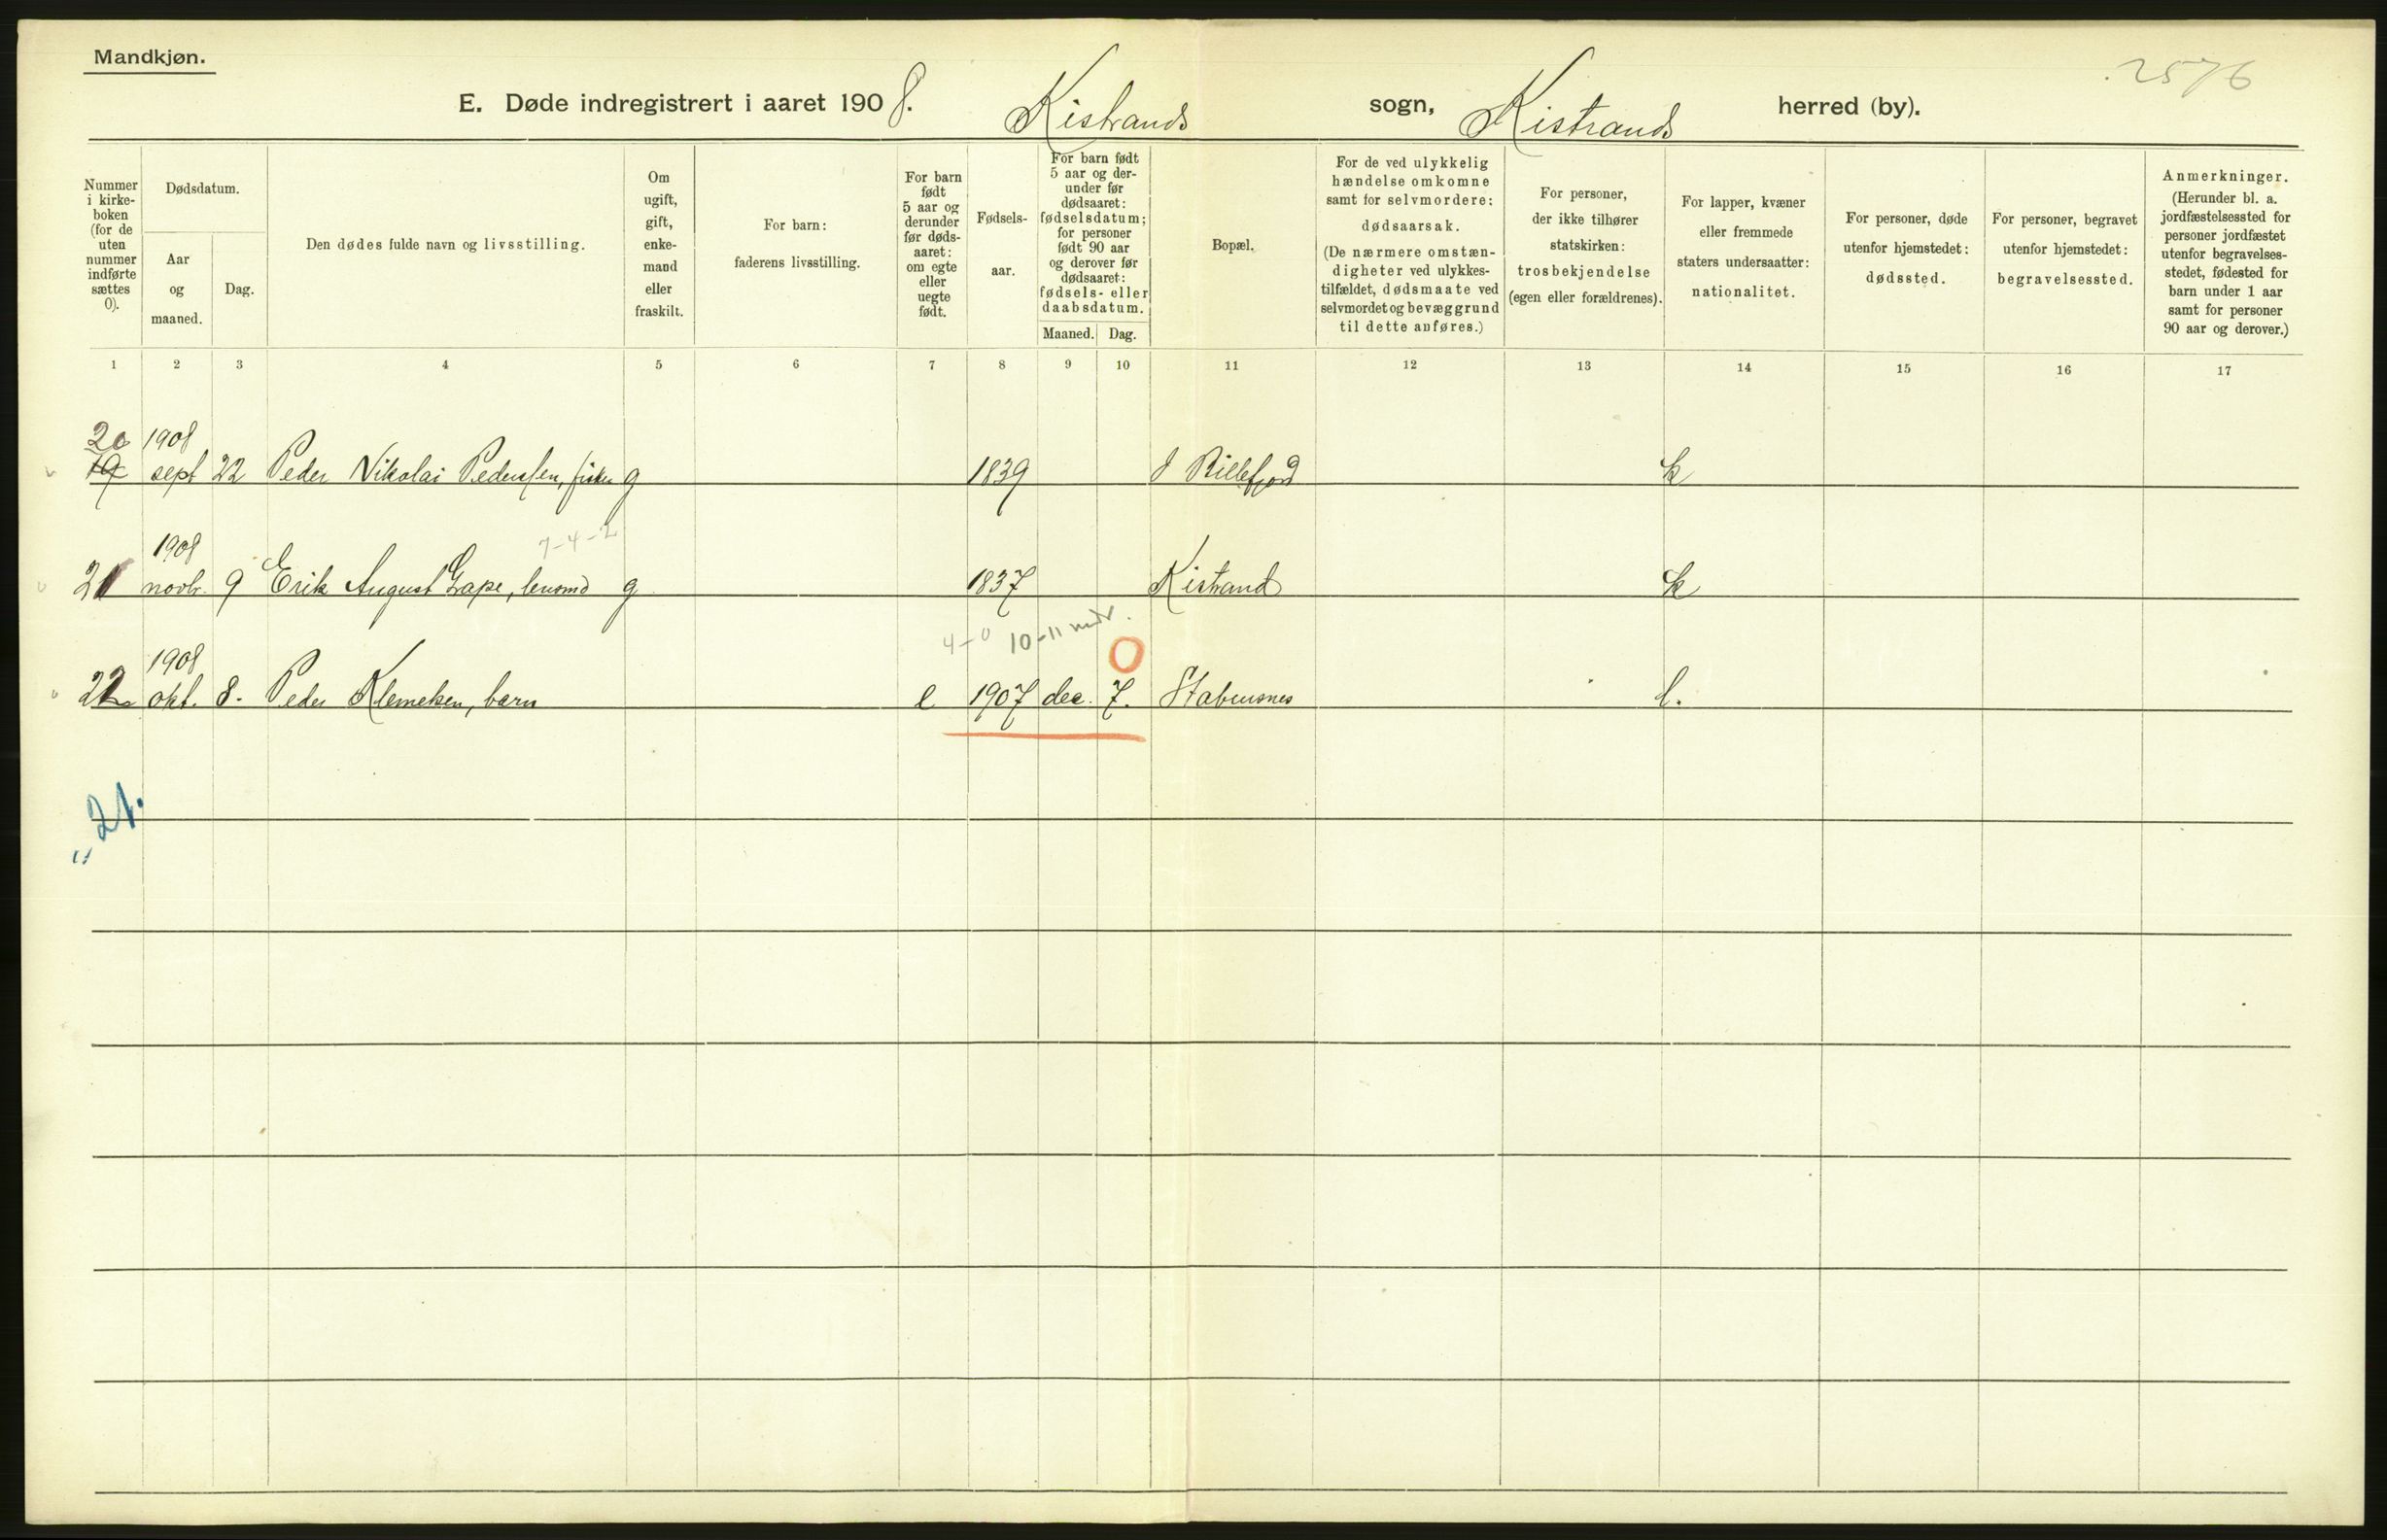 Mandkjøn.
2576
E. Døde indregistrert i aaret 1908. Kistrands sogn, Kistrands herred (by).
Nummer i kirke-boken (for de uten nummer indførte sættes 0).
Dødsdatum.
Aar og maaned.
Dag.
Den dødes fulde navn og livsstilling.
Om ugift, gift, enke-mand eller fraskilt.
For barn: faderens livsstilling.
For barn født 5 aar og derunder før døds-aaret: om egte eller uegte født.
Fødsels-aar.
For barn født 5 aar og der-under før dødsaaret: fødselsdatum; for personer født 90 aar og derover før dødsaaret: fødsels- eller daabsdatum.
Maaned.
Dag.
Bopæl.
For de ved ulykkelig hændelse omkomne samt for selvmordere: dødsaarsak. (De nærmere omstæn-digheter ved ulykkes-tilfældet, dødsmaate ved selvmordet og bevæggrund til dette anføres.)
For personer, der ikke tilhører statskirken: trosbekjendelse (egen eller forældrenes).
For lapper, kvæner eller fremmede staters undersaatter: nationalitet.
For personer, døde utenfor hjemstedet: dødssted.
For personer, begravet utenfor hjemstedet: begravelsessted.
Anmerkninger. (Herunder bl. a. jordfæstelsessted for personer jordfæstet utenfor begravelses-stedet, fødested for barn under 1 aar samt for personer 90 aar og derover.)
1 2 3 4 5 6 7 8 9 10 11 12 13 14 15 16 17
20 1908
19 sept 22 Peder Nikolai Pedersen, fisker g 1839 Billefjord k
1908 7-4-2
21 novbr. 9 Erik August Grape, g 1837 Kistrand k
4-0 10-11 mdr.
1908 0
22 okt. 8. Peder Klemetsen, barn e 1907 dec. 7. Stabursnes l.
21.